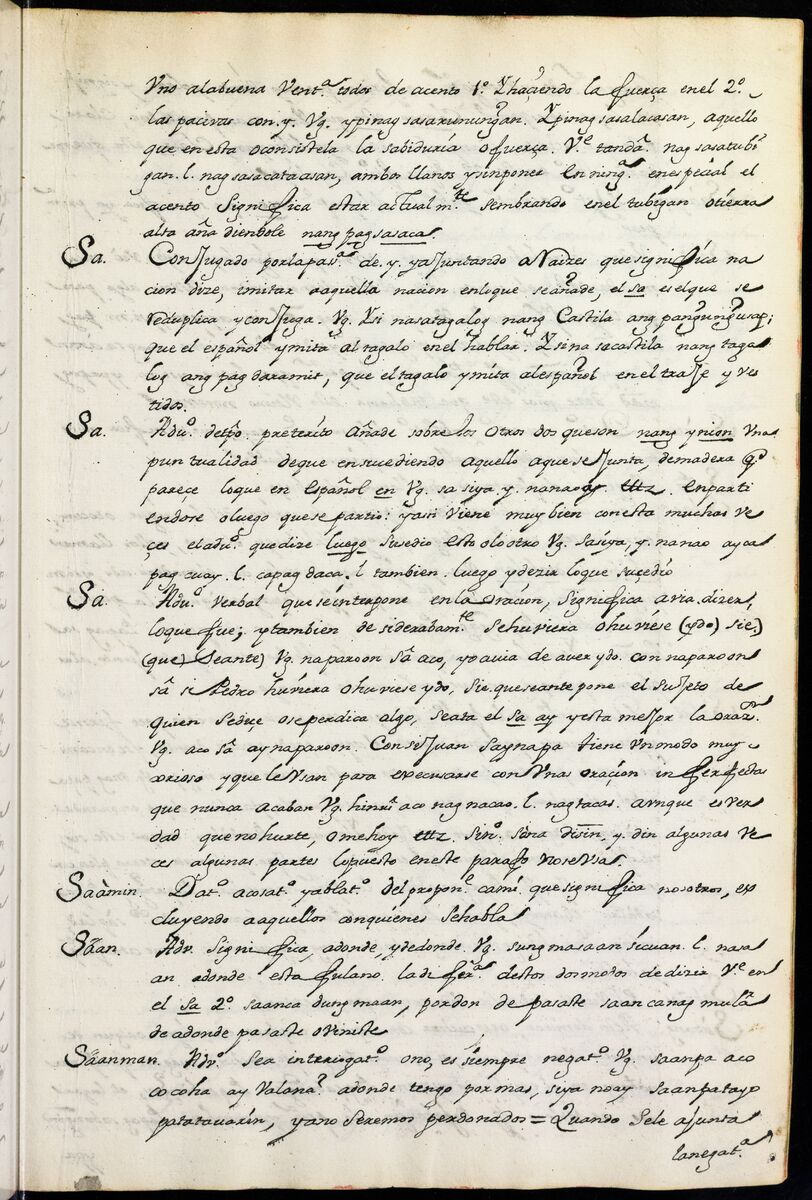 Vno alabuena Vent.ª todos de acento 1.º Y haçiendo la fuerça enel 2.º
las pacivas con. y. Vg. ypinag sasarunungan. Ypinag sasalacasan, aquello
que en esta o consistela la sabiduria o fuerça. V.e tanda.ª nag sasatubi
gan. l. nag sasacatacasan, ambos llanos y sin poner en ning.ª en especial el
acento significa estar actual m.te sembrando enel tubigan o tierra
alta aña diendole nang pag sasaca.
Sa. Conjugado por la pas.ª de. y. ya Juntando a Naizes que significa na
cion dize, imitar a aquella nacion enloque se añade, el sa es el que se
reduplica y conjuga. Vg. Ysi nasatagalog nang Castila ang pangungusap;
que el español ymita al tagalo en el hablar. Ysina sacastila nang taga
log ang pag daramit, que el tagalo ymita al español en el traje y ves
tidos.
Sa. Adu.º detpo. preterito añade sobre los otros dos que son nang y nion Vna
puntualidad de que en sucediendo aquello aque se Junta, de madera q.e
parece loque en Español en Vg. sa siya y. nanao ay. ettz. en parti
endose o luego que se partio: y assi Viene muy bien con esta muchas ve
çes el adu.º que dize luego susedio esto o lo otro Vg. sasiya, y. nanao ay ca
pag cuay. l. capag daca. l. tambien. luego y dezir loque suçedio
Sa. Adu.º verbal que se interpone en la oraçion, significa avia. dizer,
loque fue; y tambien de siderabam.te se huviera o huviese (ydo) sie.)
(que) seante) Vg. naparoon sã aco, yo avia de aver ydo. con naparoon
sã si Pedro huviera o huviese ydo, sie. que se ante pone el sujeto de
quien se dice o se perdica algo, seata el sa ay y esta mejor la oraz.n
Vg. aco sã ay naparoon. Con se Juan saynapa tiene Vn modo muy
corioso y que le Vsan para excusarse con Vnas oraçion in ferfectas
que nunca acaban Vg. hindi aco nag nacao. l. nag tacas. avnque es ver
dad que no hurte, o me hoy ettz. sin.º sana disin, y. din algunas ve
ces algunas partes lo puesto en este parafo no se Vsa.
Saàmin. Dat.º acosat.º y ablat.º del propon.e cami que significa nosotros, ex
cluyendo a aquellos con quienes se habla
Sãan. Adv. significa, adonde, y de donde. Vg. sung masaan si cuan. l. nasa
an adonde esta fulano. la difer.ª destos dos modos de dizir V.e en
el sa 2.º saanca dung maan, por don de pasaste saan canag mula
de adonde pasaste o veniste
Sãanman. Adv.º sea interrogat.º o no, es siempre negat.º Vg. saanpa aco
cocoha ay Valana.ª adonde tengo por mas, siya noay saan pa tayo
patatauarin, ya no seremos perdonados = Quando sele ajunta
lanegat.ª